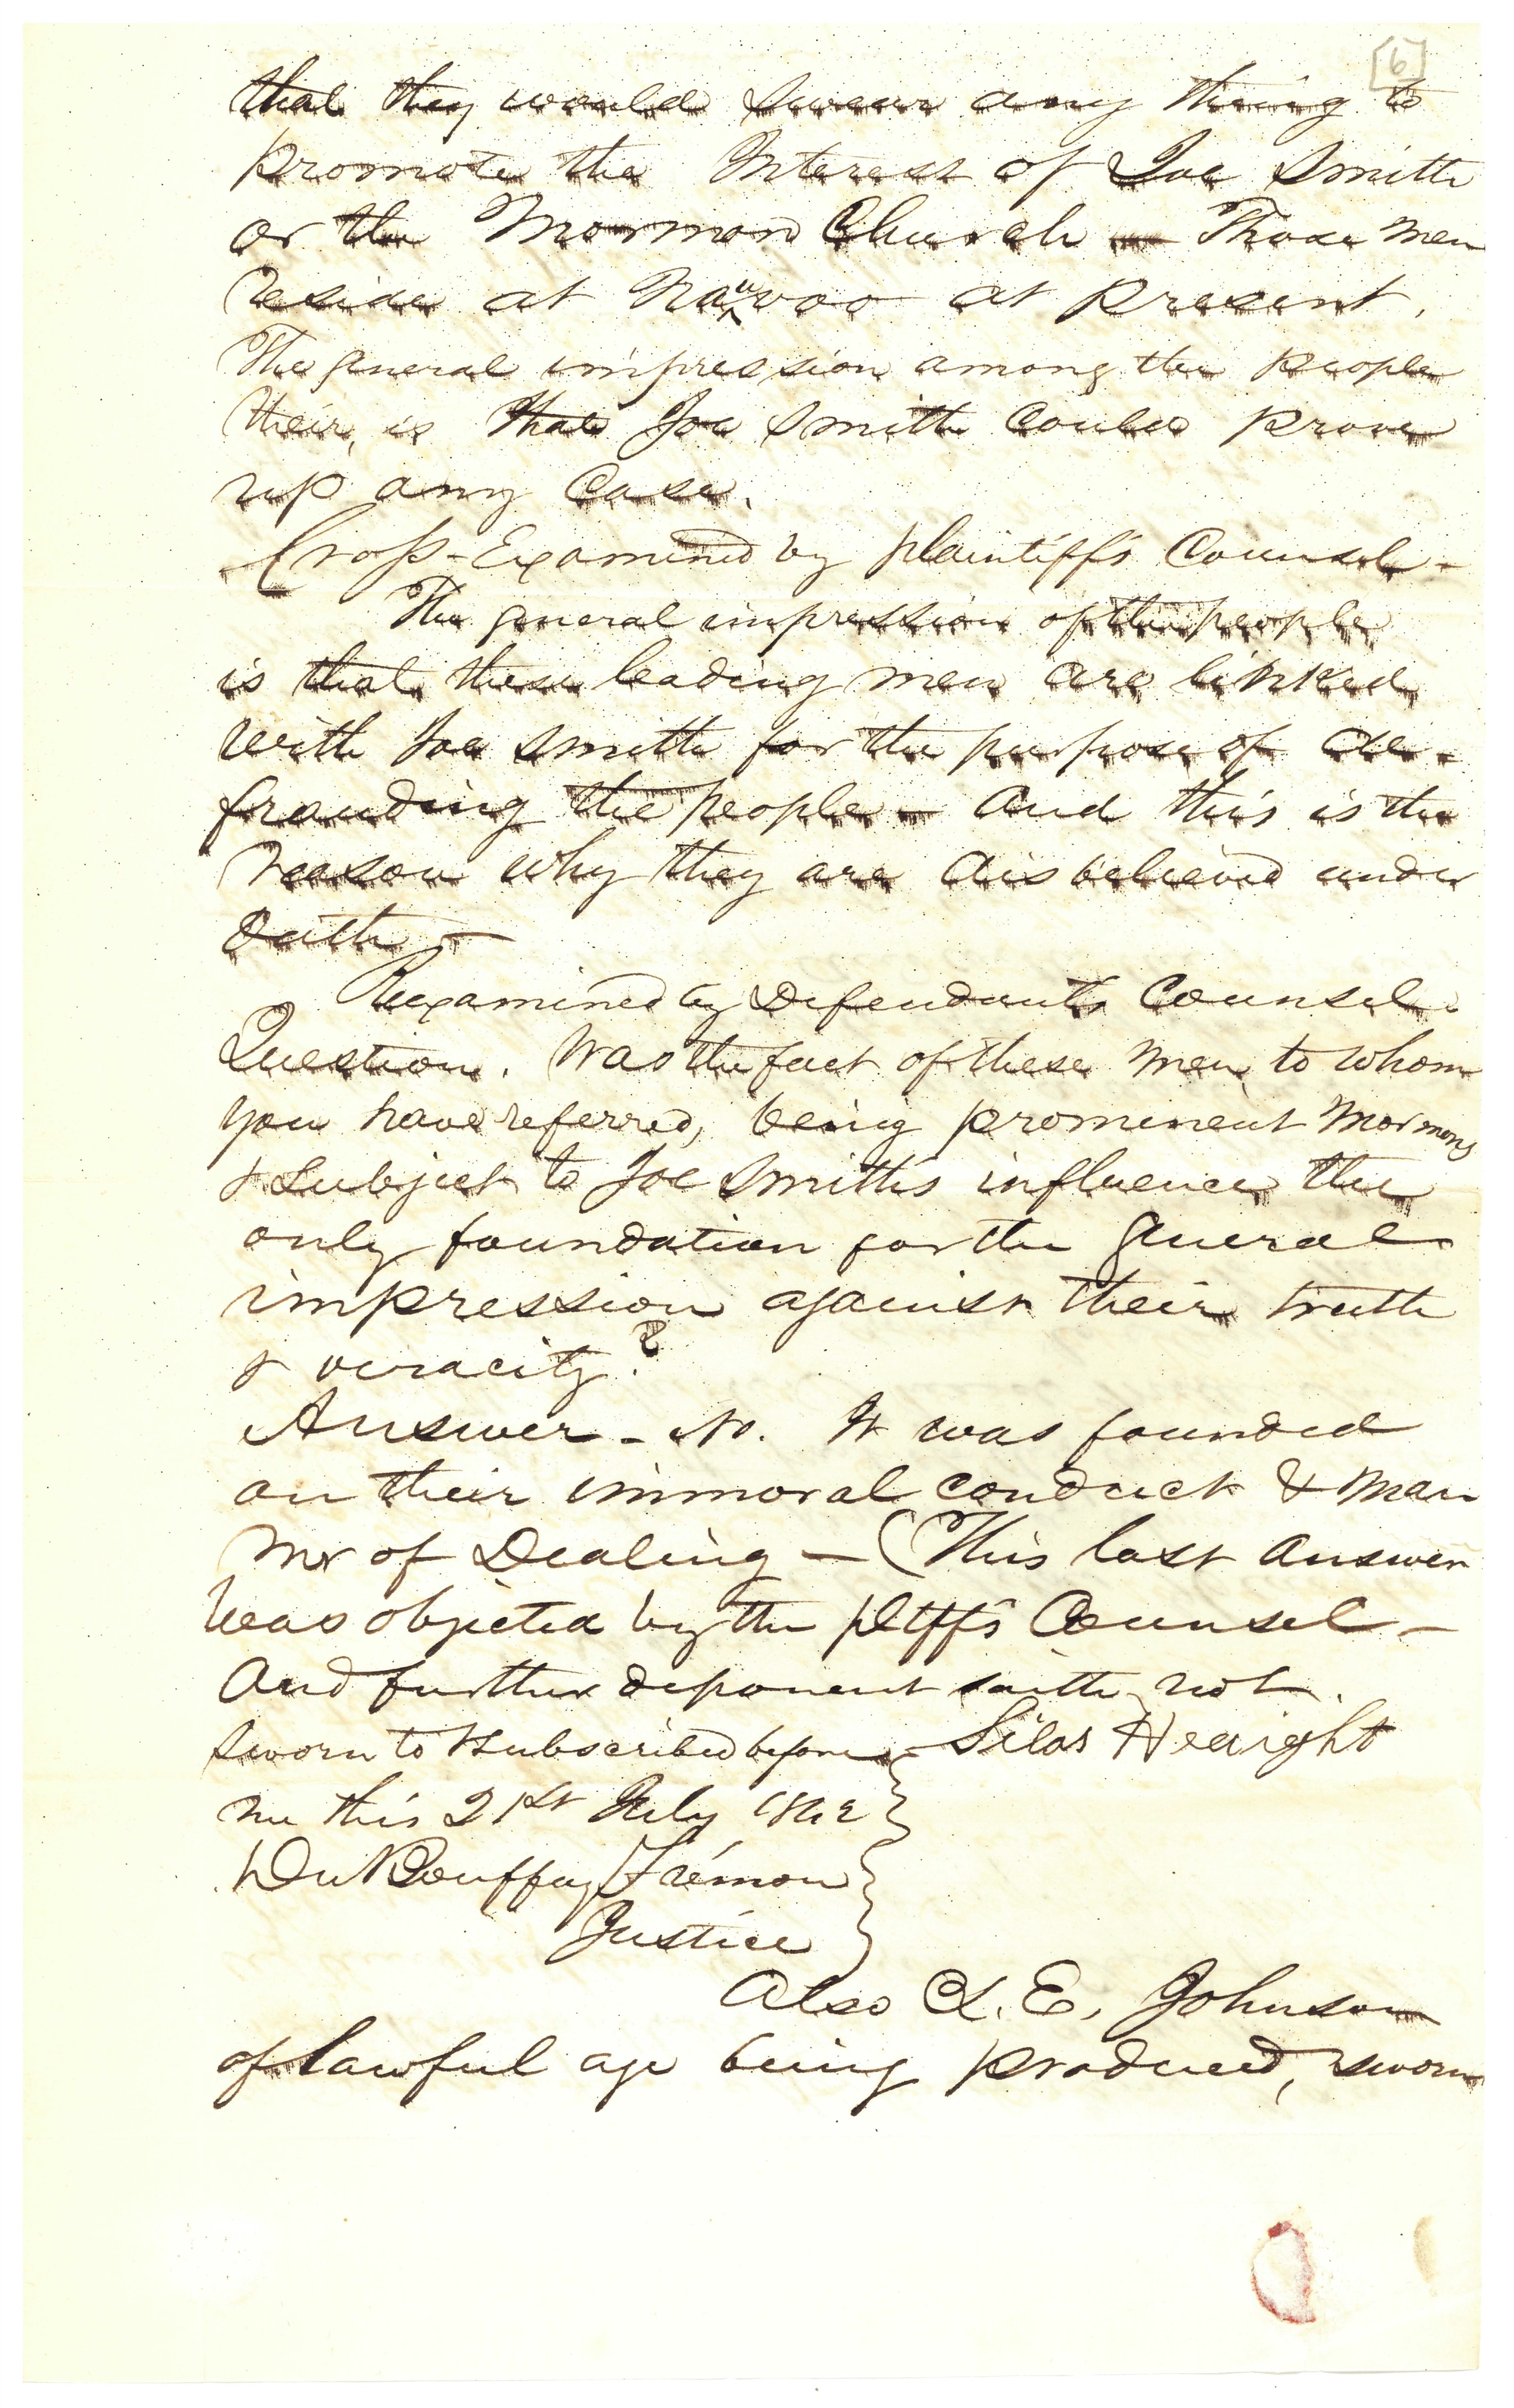 [6]
that they would swear any thing to
promote the Interest of Joe Smith
or the Mormon Church – Those men
reside at Nauvoo at present.
The general impression among the people
their, is that Joe Smith could prove
up any Case.
Cross-Examined by plaintiffs Counsel –
The general impression of the people
is that these leading men are linked
with Joe Smith for the purpose of de-
frauding the people – and this is the
reason why they are disbelieved under
Oath –
Reexamined by Defendants Counsel.
Question. Was the fact of these men, to whom
you have referred, being prominent Mormons
& subject to Joe Smith's influence the
only foundation for the general
impression against their truth
& veracity?
Answer – No. It was founded
on their immoral conduct & man
ner of Dealing – (This last answer
was objected by the Pltff's Counsel –
And further deponent saith not.
Sworn to & subscribed before – Silas Height
me this 21st July 1842
Du Bouffay Frémon
Justice
Also L. E. Johnson
of lawful age being produced, sworn